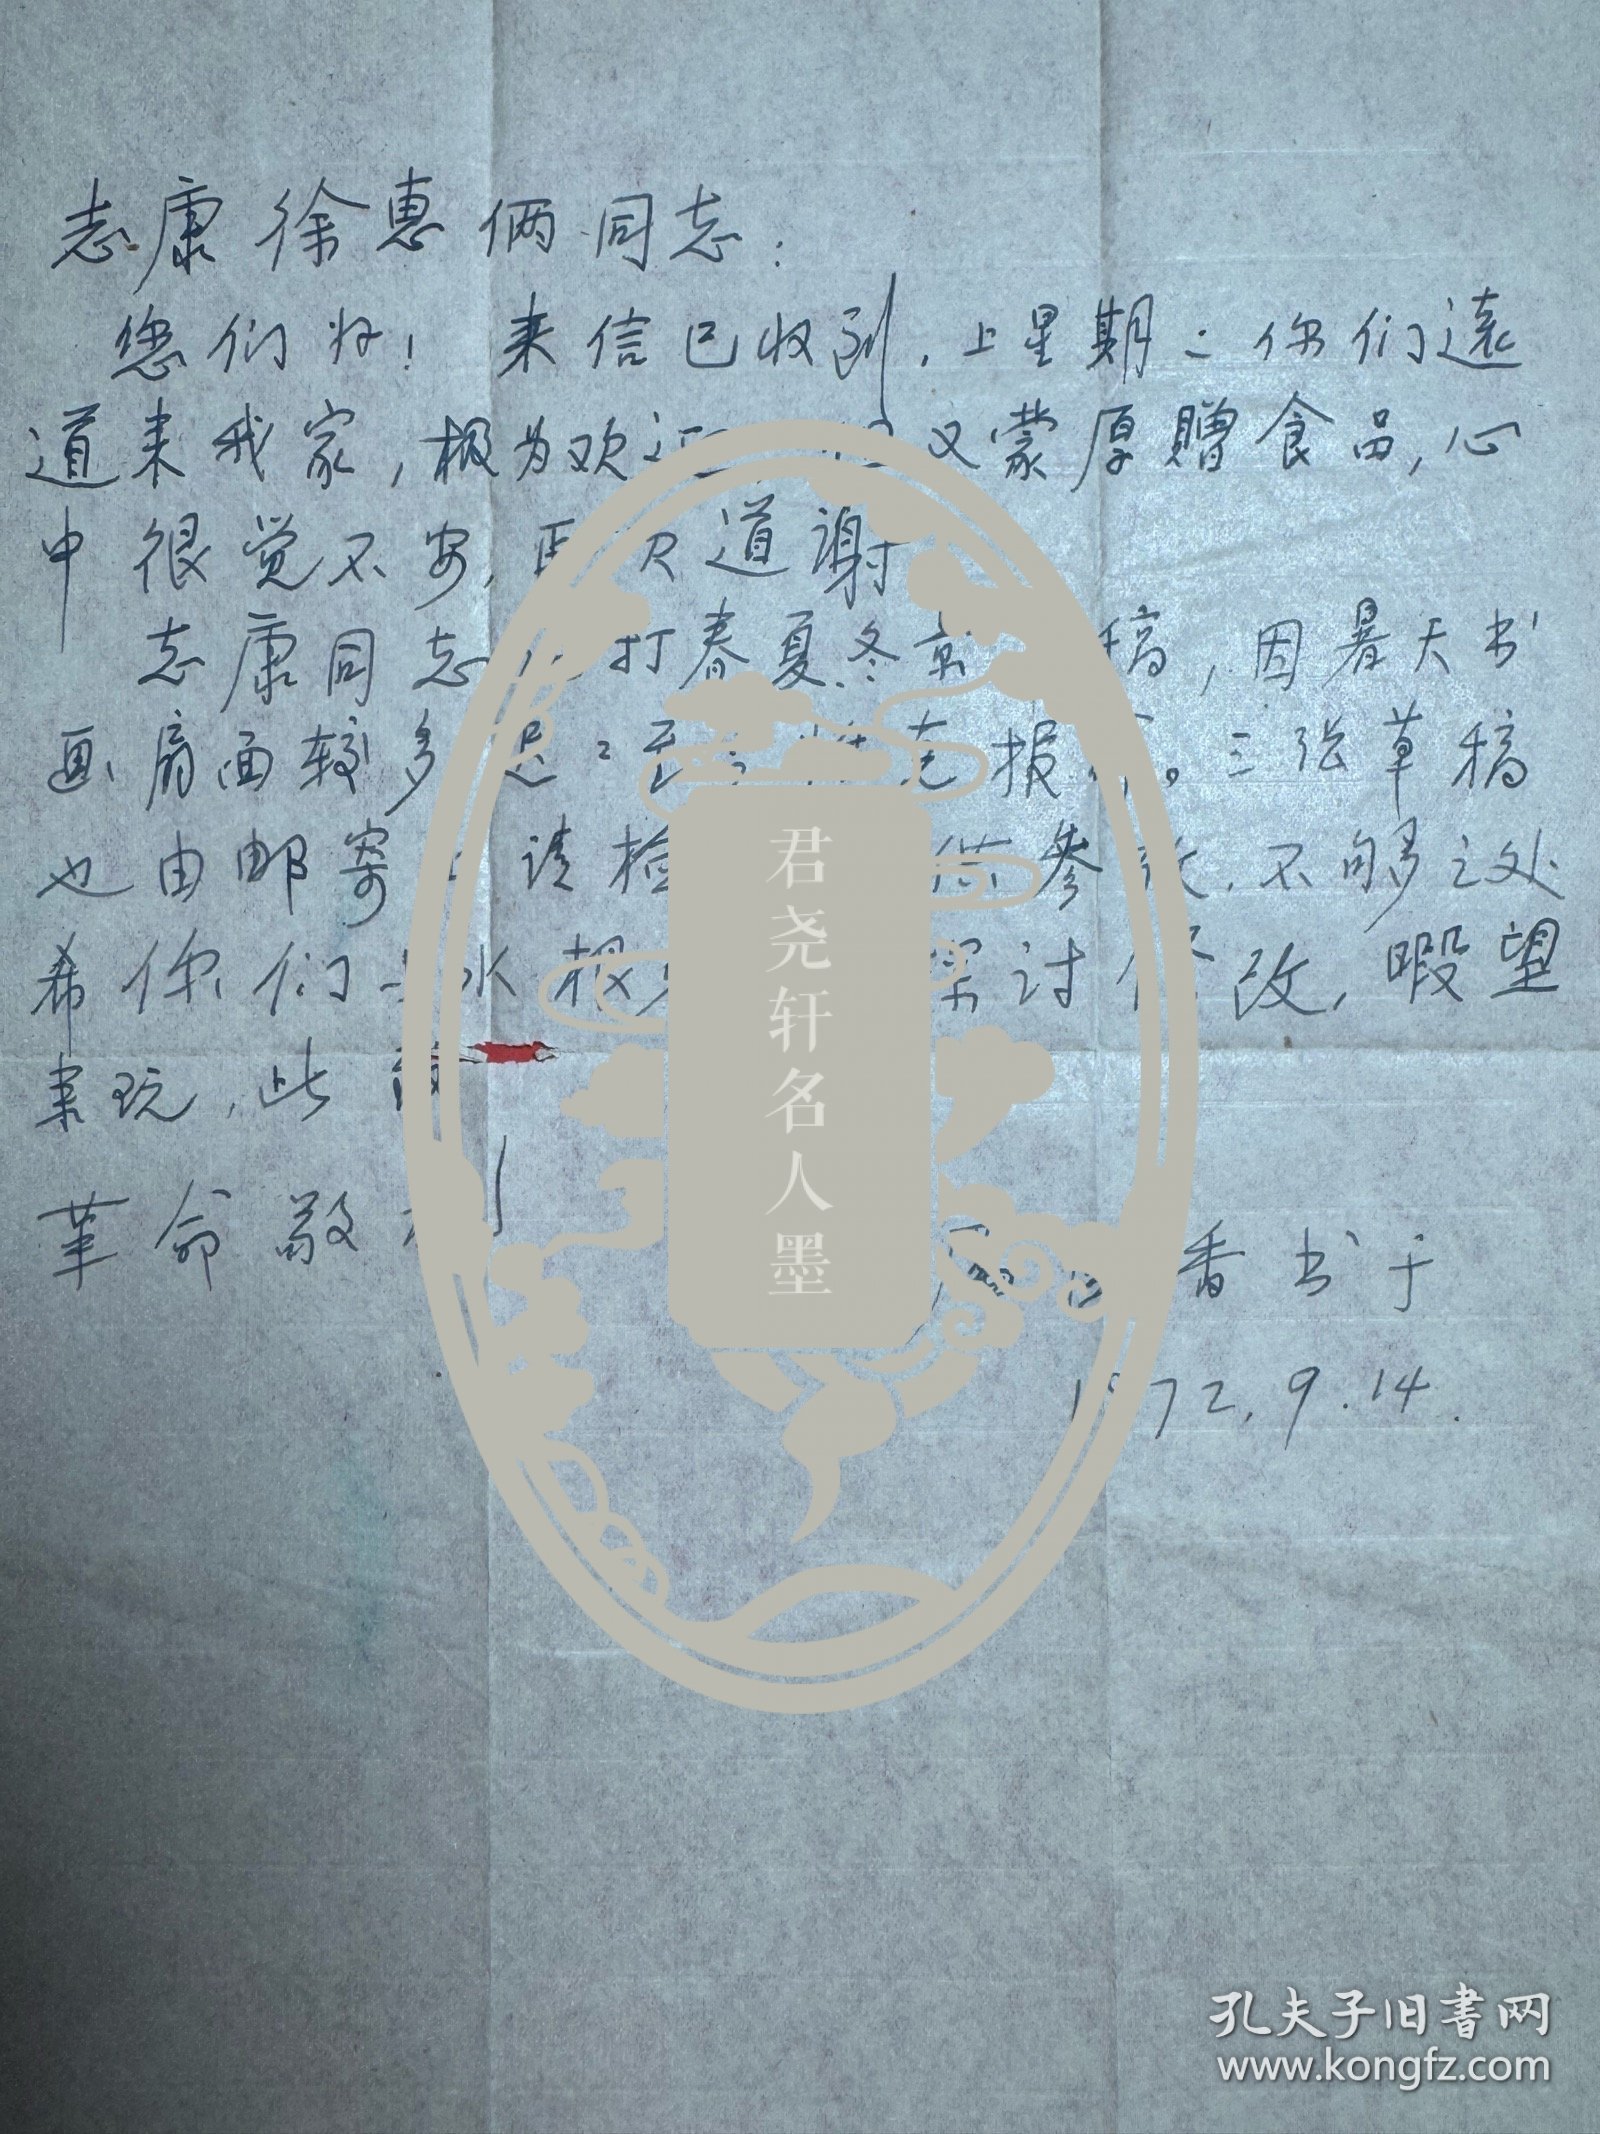 志康徐惠俩同志：
您们好！ 来信已收到，上星期二你们遠
道来我家，极为欢迎 又蒙厚贈食品，心
中很觉不安，再次道謝
志康同志 打春夏冬 稿，因暑天书
画扇面较多，迟迟至 报 。三张草稿
也由邮寄 请检 供参 ，不够之处
希你们 探讨修改，暇望
来玩，此致
革命敬礼
香书于
1972.9.14.
君尧轩名人墨
孔夫子旧书网
www.kongfz.com